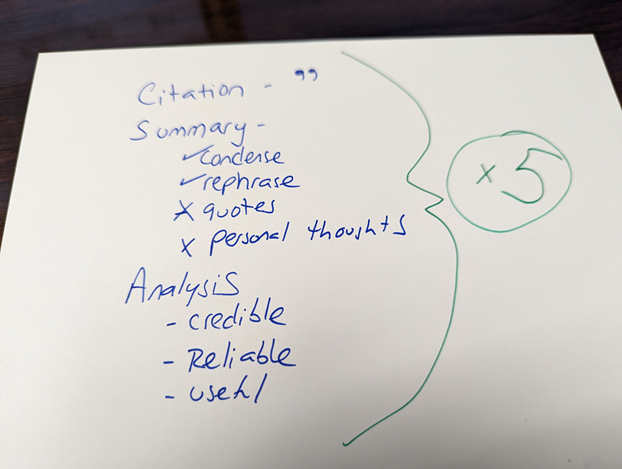 Citation - ""
Summary -
✓condense
✓rephrase
x quotes
x personal thoughts
Analysis
- credible
- Reliable
- useful
x 5